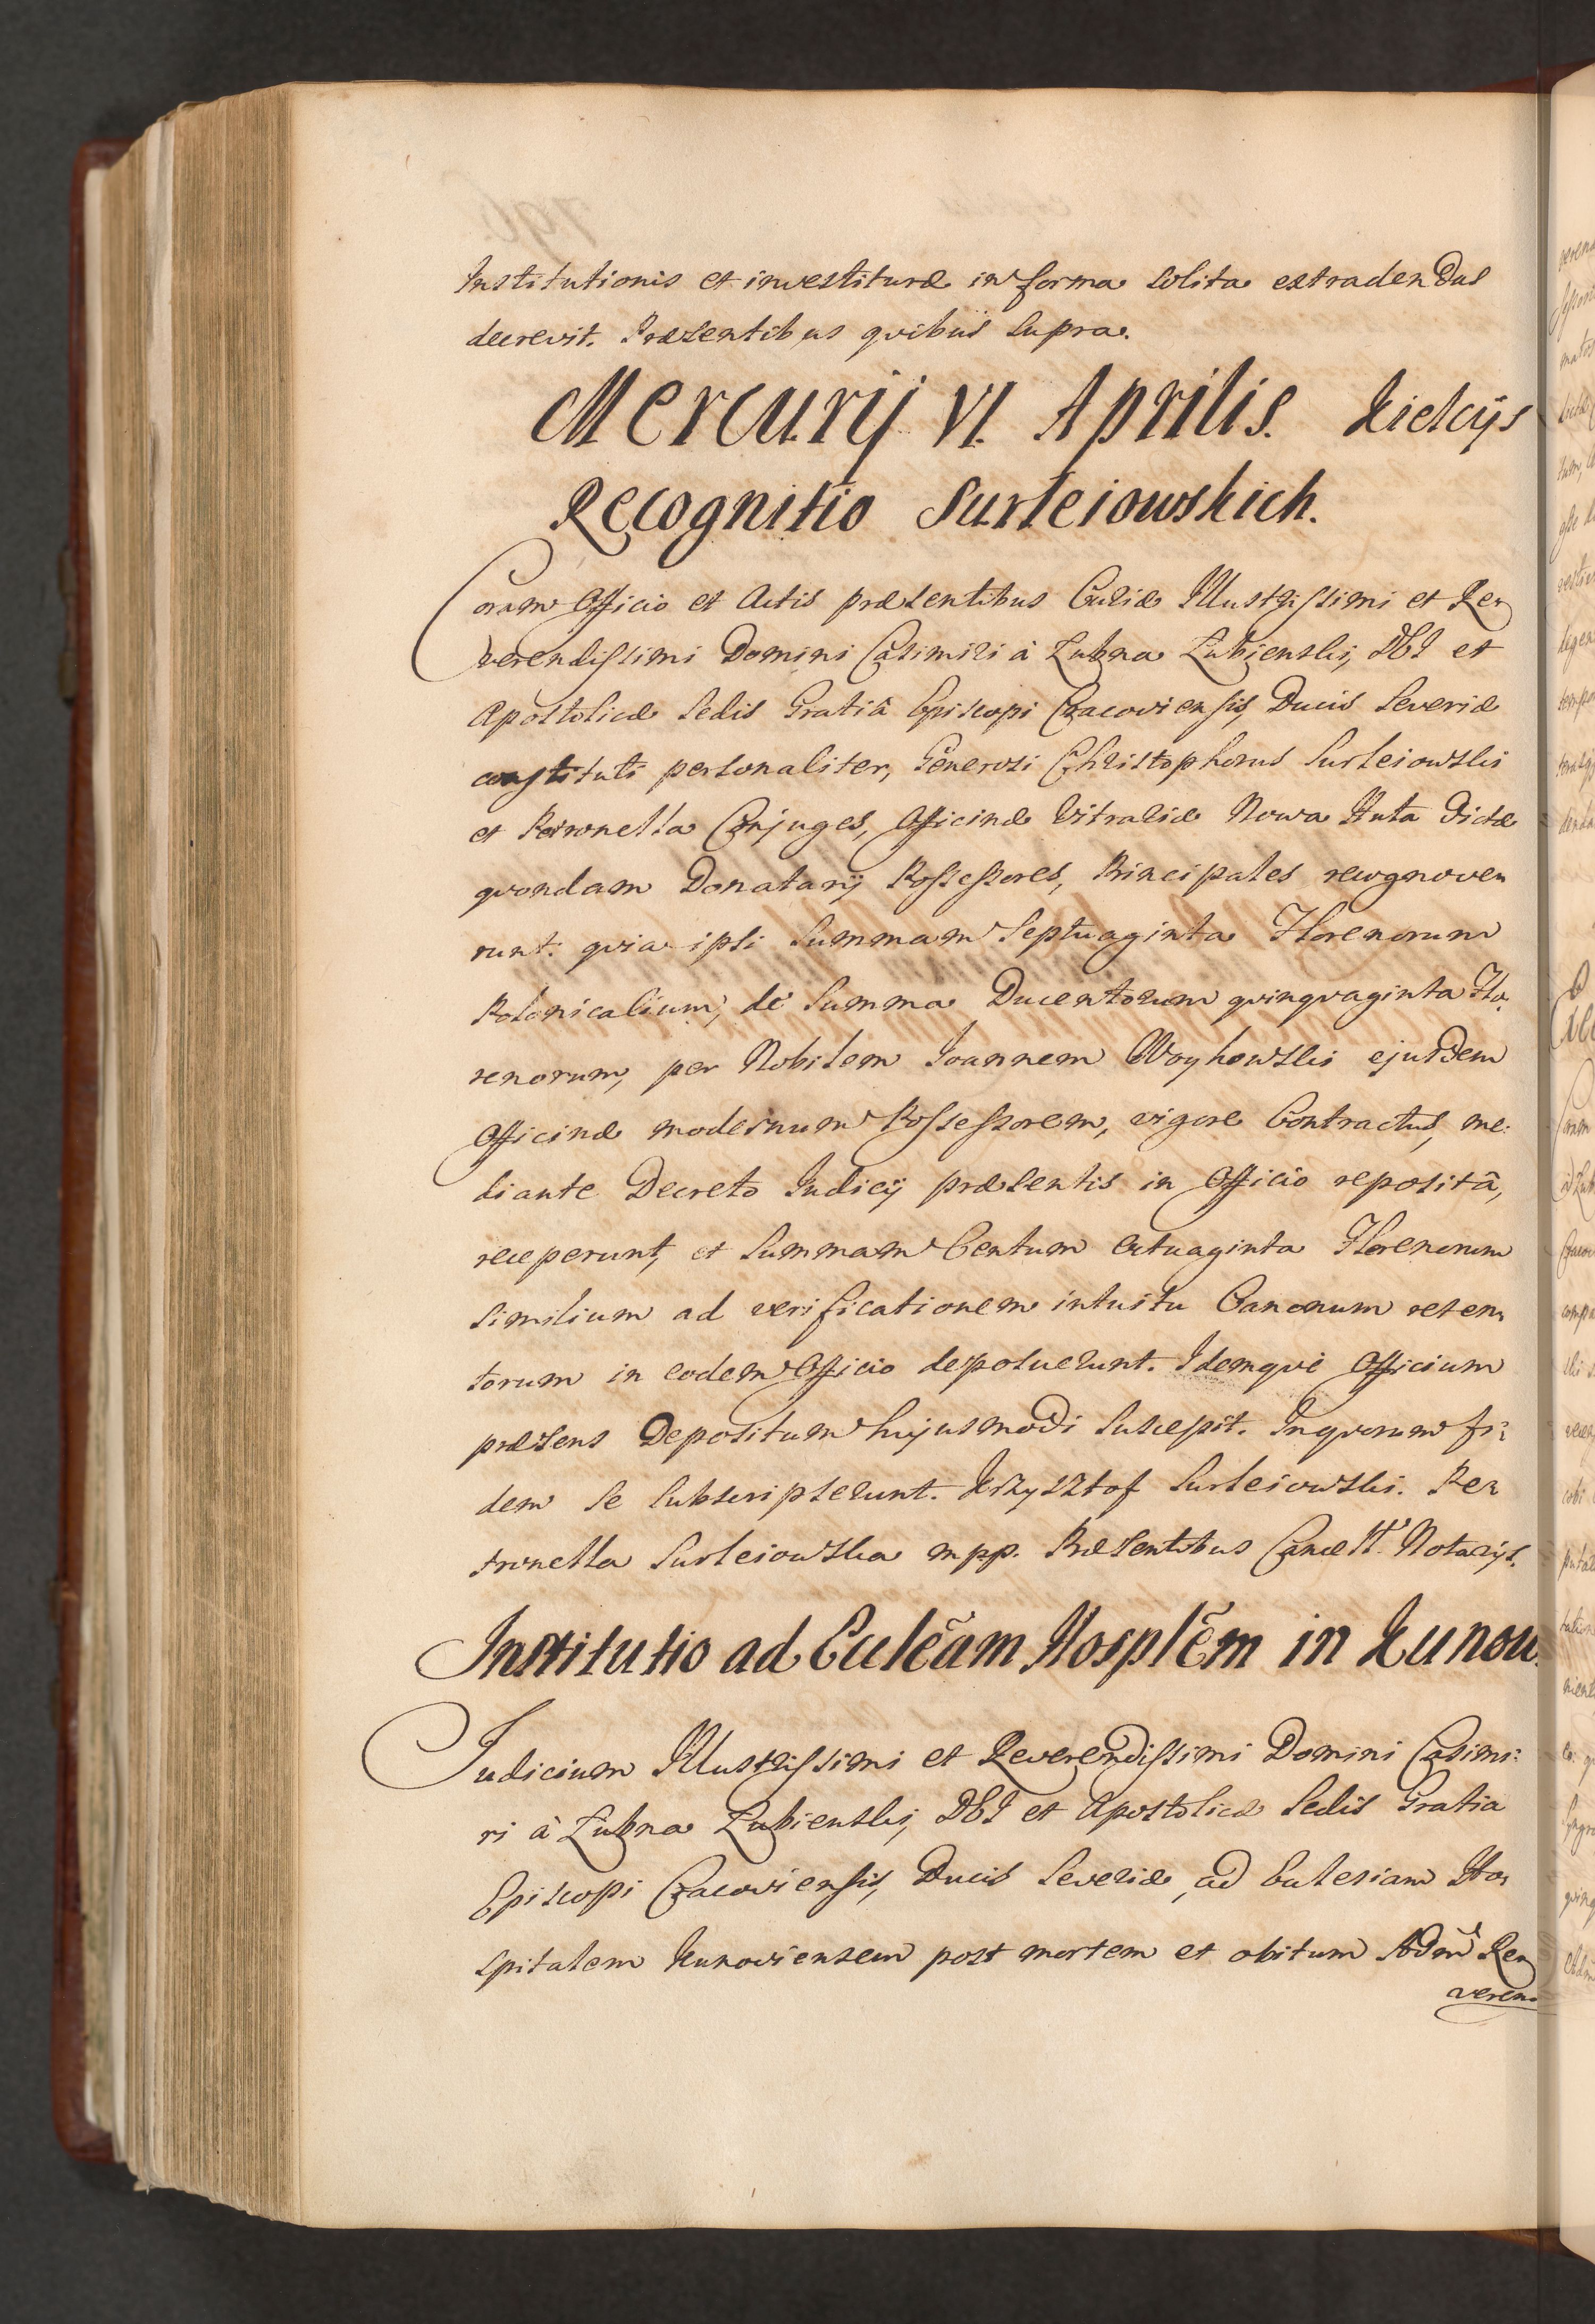 Institutionis et investituræ in forma solita extradendas
decrevit. Præsentibus qvibus supra.
Mercurij VI. Aprilis. Kielcijs
Recognitio Surleiowskich.
Coram Officio et Actis præsentibus Curiæ Illustrissimi et Re-
verendissimi Domini Casimiri à Łubna Łubienski, DEI et
Apostolicæ Sedis Gratiâ Episcopi Cracoviensis, Ducis Severiæ
constituti personaliter, Generosi Christophorus Surleiowski
et Petronella Conjuges, Officinæ Vitraliæ Nowa Huta dictæ
qvondam Donatarij Possessores, Principales recognoveru-
runt: qvia ipsi Summam Septuaginta Florenorum
Polonicalium, de Summa Ducentorum qvinqvaginta Flo-
renorum, per Nobilem Joannem Woyhowski ejusdem
Officinæ modernum Possessorem, vigore Contractus, me-
diante Decreto Judicij præsentis in Officio repositâ,
receperunt, et Summam Centum octuaginta Florenorum
similium ad verificationem intuitu Canonum reten-
torum in eodem Officio deposuerunt. Idemqve Officium
præsens Depositum hujusmodi suscepit. In qvorum fi-
dem se subscripserunt. Krzysztof Surleiowski. Pe-
tronella Surleiowska mpp. Præsentibus Cancell. Notarijs.
Institutio ad Eccleãm Hosplẽm in Kunow
Judicium Illustrissimi et Reverendissimi Domini Casimi-
ri à Łubna Łubienski, DEI et Apostolicæ Sedis Gratia
Episcopi Cracoviensis, Ducis Severiæ, ad Eclesiam Ho-
spitalem Kunoviensem post mortem et obitum Adm̃ Re-
veren-